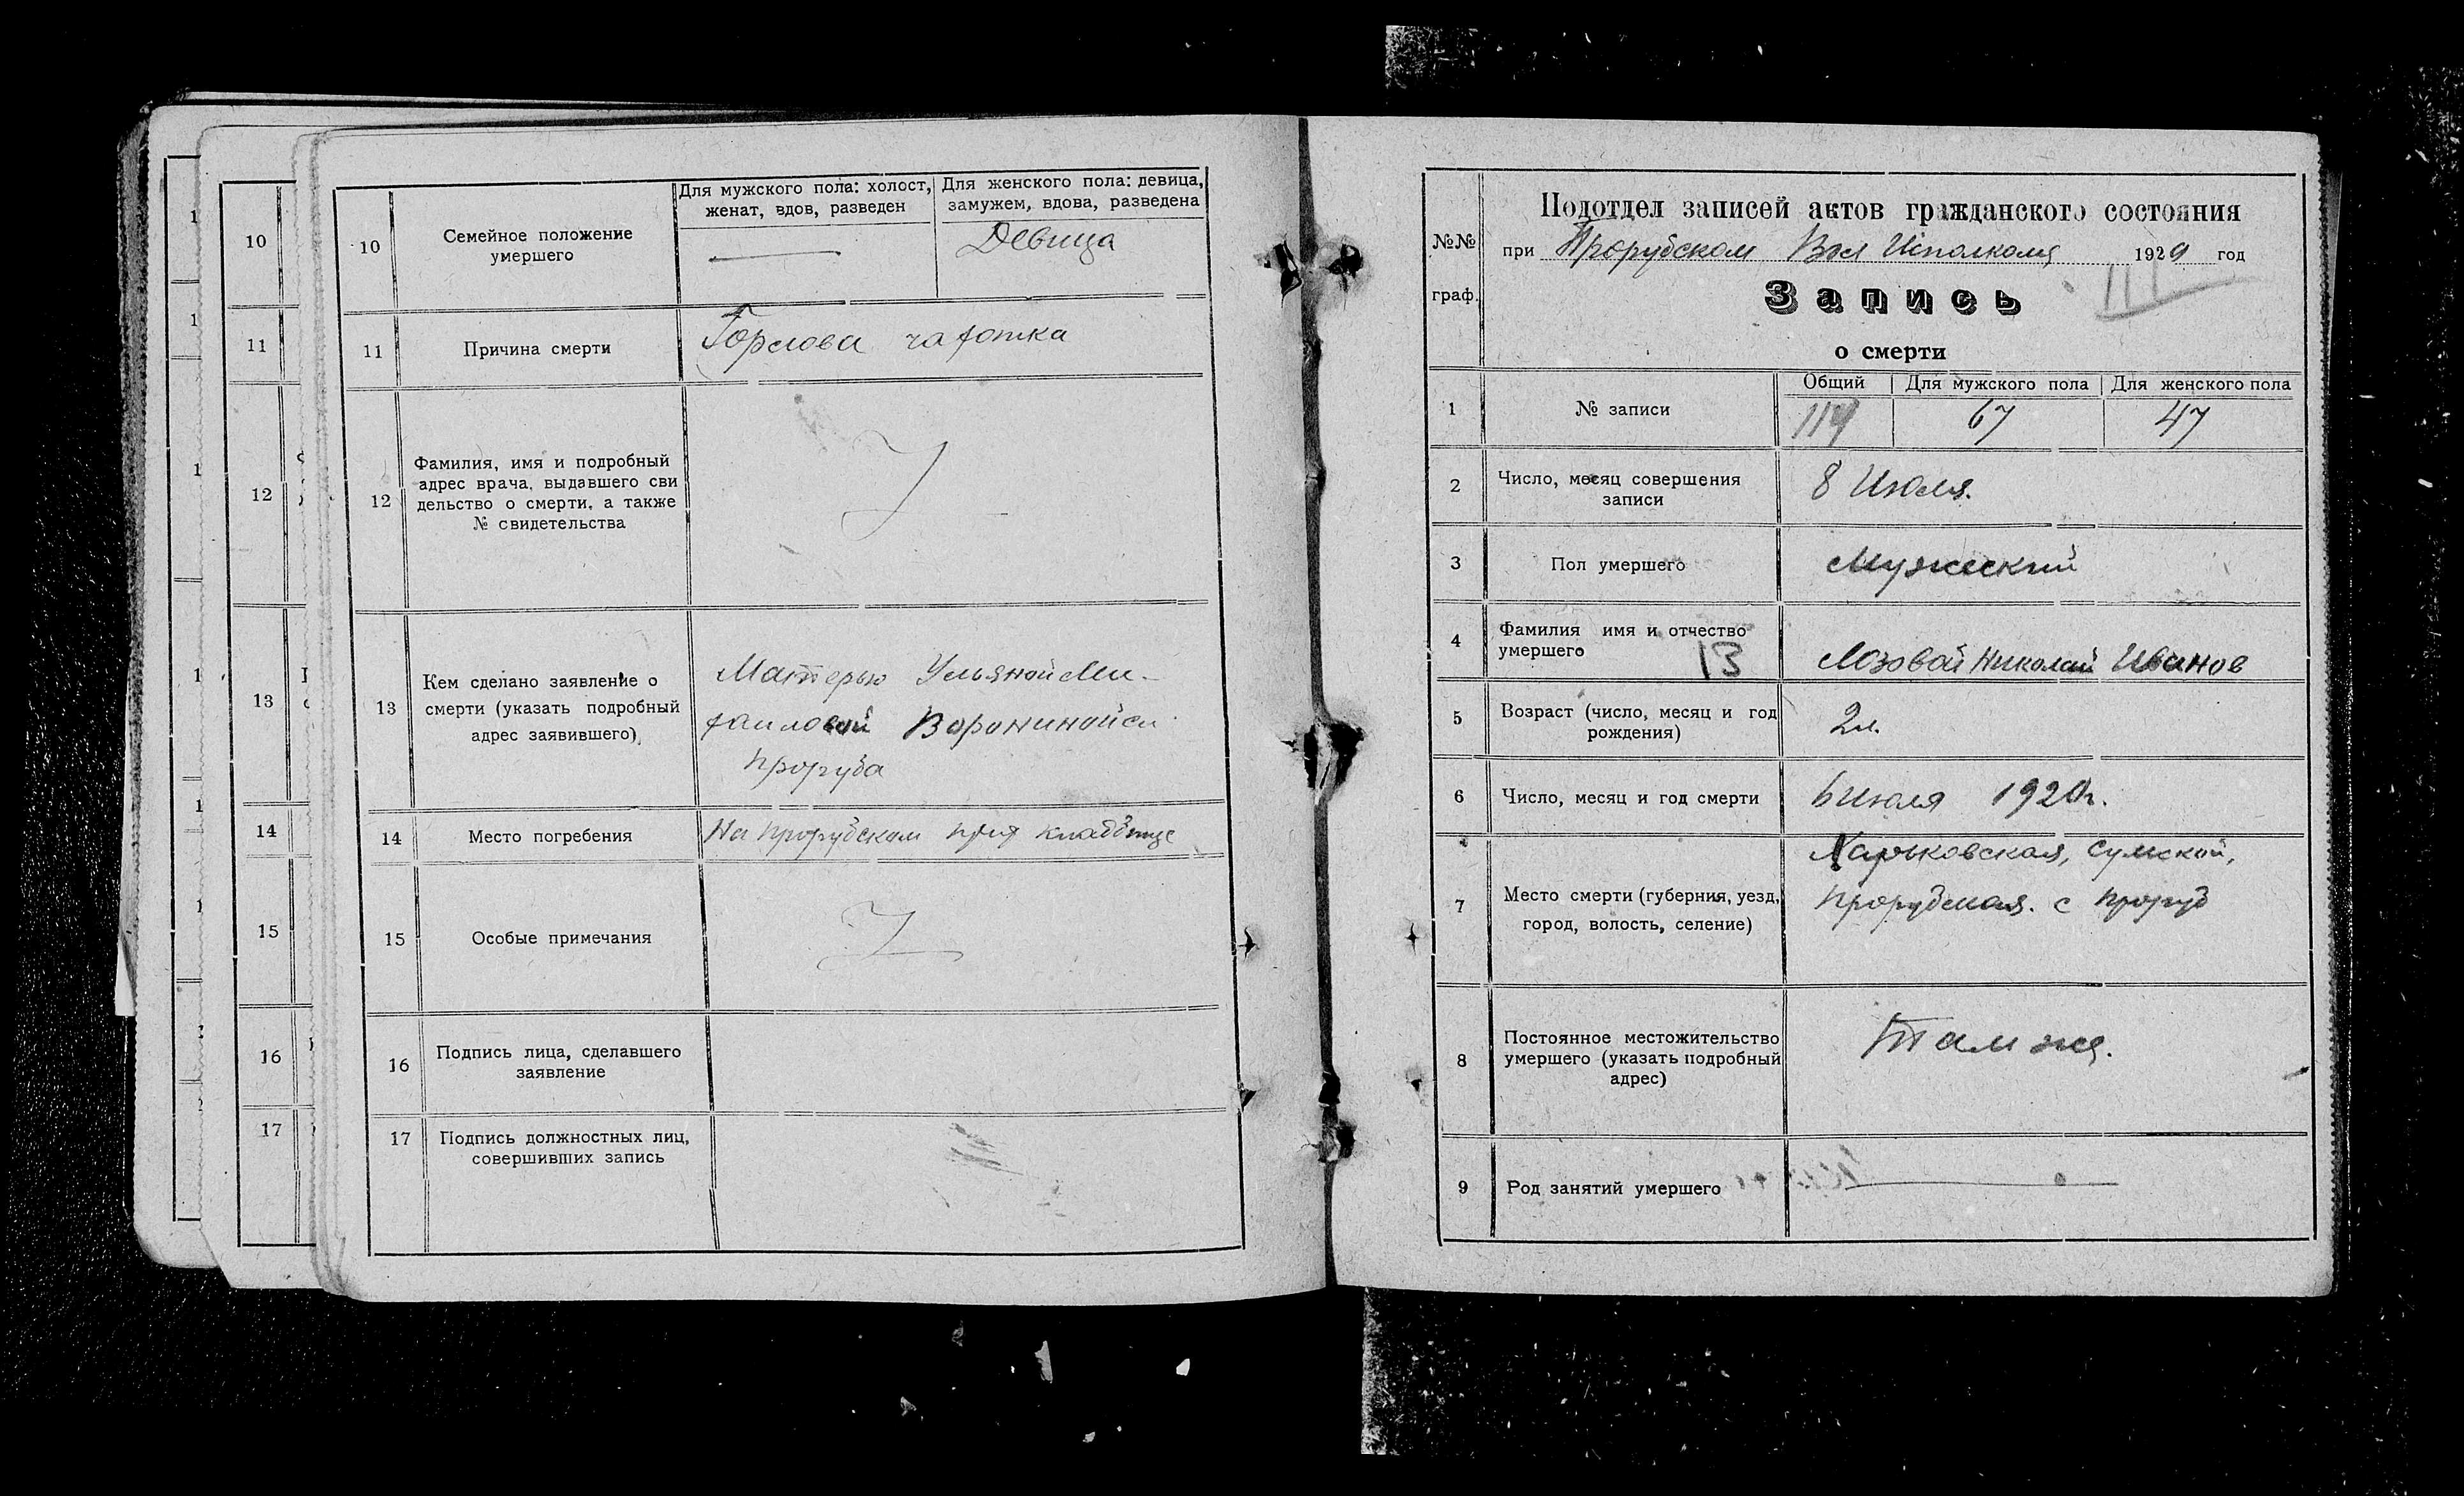 10
11
12
13
14
15
16
17
10
Семейное положение
умершего
Для мужского пола: холост,
женат, вдов, разведен
Для женского пола: девица,
замужем, вдова, разведена
Девица
11
Причина смерти
Горлова чахотка
12
Фамилия, имя и подробный
адрес врача, выдавшего сви
дельство о смерти, а также
№ свидетельства
13
Кем сделано заявление о
смерти (указать подробный
адрес заявившего)
Матерью Ульяной Ми-
хаиловой Ворониной сл
Проруба
14
Место погребения
На Прорубском кладбище
15
Особые примечания
16
Подпись лица, сделавшего
заявление
17
Подпись должностных лиц,
совершивших запись
№№
граф.
Подотдел записей актов гражданского состояния
при Прорубском Вол Исполкома 1920 год
III
Запись
о смерти
1
№ записи
Общий
Для мужского пола
Для женского пола
114
67
47
2
Число, месяц совершения
записи
8 Июля.
3
Пол умершего
Мужеский
4
Фамилия имя и отчество
умершего
13
Лозовой Николай Иванов
5
Возраст (число, месяц и год
рождения)
2 л.
6
Число, месяц и год смерти
6 Июля 1920 г.
7
Место смерти (губерния, уезд,
город, волость, селение)
Харьковская, Сумский,
Прорубская. с Проруб
8
Постоянное местожительство
умершего (указать подробный
адрес)
Там же.
9
Род занятий умершего